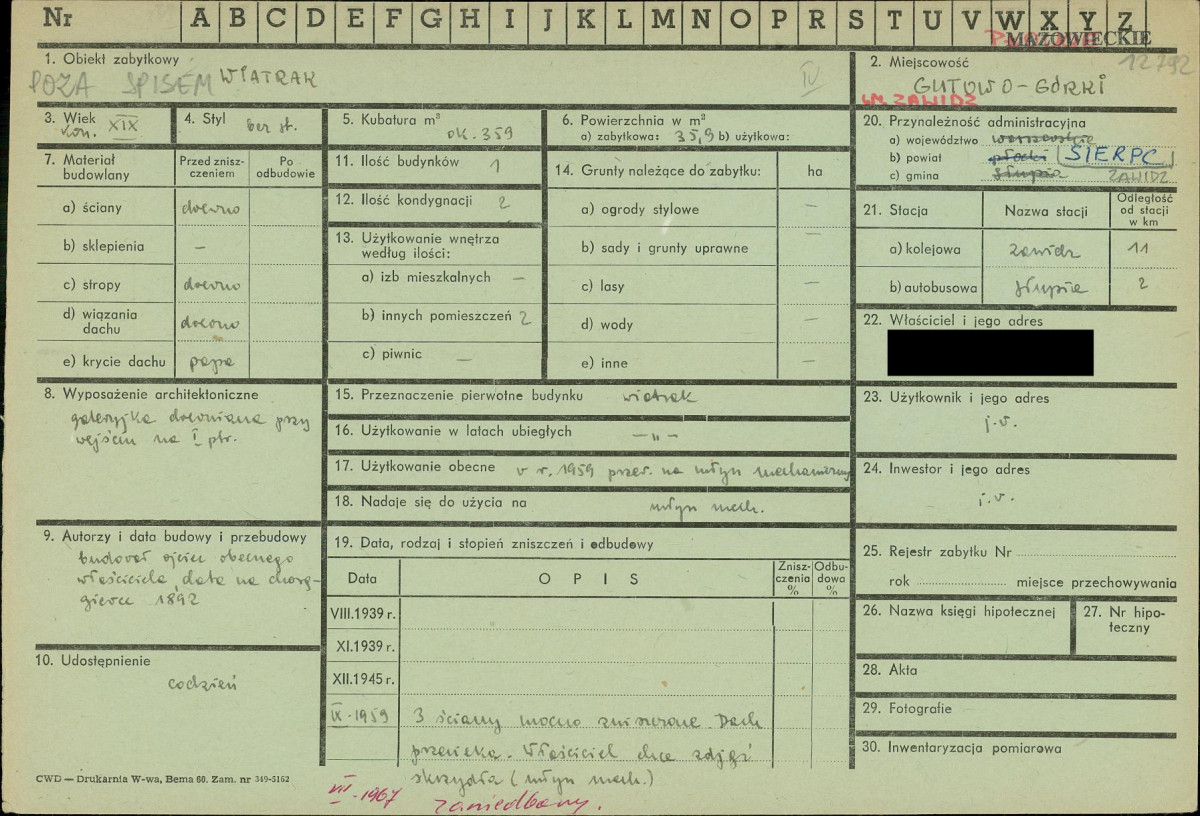 Nr A B C D E F G H I J K L M N O P R S T U V W X Y Z
MAZOWIECKIE
12792
1. Obiekt zabytkowy
POZA SPISEM WIATRAK IV
2. Miejscowość
GUTOWO-GÓRKI
gm. ZAWIDZ
3. Wiek
kon. XIX
4. Styl
bez st.
5. Kubatura m³
ok. 359
6. Powierzchnia w m²
a) zabytkowa: 35,9 b) użytkowa:
20. Przynależność administracyjna
a) województwo warszawskie
b) powiat płocki SIERPC
c) gmina Słupia ZAWIDZ
7. Materiał budowlany
Przed zniszczeniem
Po odbudowie
a) ściany drewno
b) sklepienia –
c) stropy drewno
d) wiązania dachu drewno
e) krycie dachu papa
11. Ilość budynków 1
12. Ilość kondygnacji 2
13. Użytkowanie wnętrza
według ilości:
a) izb mieszkalnych –
b) innych pomieszczeń 2
c) piwnic –
14. Grunty należące do zabytku: ha
a) ogrody stylowe –
b) sady i grunty uprawne –
c) lasy –
d) wody –
e) inne –
21. Stacja
Nazwa stacji
Odległość od stacji w km
a) kolejowa Zawidz 11
b) autobusowa Słupia 2
22. Właściciel i jego adres
8. Wyposażenie architektoniczne
galeryjka drewniana przy
wejściu na I ptr.
15. Przeznaczenie pierwotne budynku wiatrak
16. Użytkowanie w latach ubiegłych –„–
17. Użytkowanie obecne w r. 1959 przer. na młyn mechaniczny
18. Nadaje się do użycia na młyn mech.
23. Użytkownik i jego adres
j.w.
24. Inwestor i jego adres
j.w.
9. Autorzy i data budowy i przebudowy
budował ojciec obecnego
właściciela, data na chorą-
giewce 1892
19. Data, rodzaj i stopień zniszczeń i odbudowy
Data
OPIS
Zniszczenia %
Odbudowa %
VIII.1939 r.
XI.1939 r.
XII.1945 r.
IX-1959 3 ściany mocno zniszczone. Dach
przecieka. Właściciel chce zdjąć
skrzydła (młyn mech.)
VII-1967 zaniedbany.
10. Udostępnienie
codzień
25. Rejestr zabytku Nr
rok miejsce przechowywania
26. Nazwa księgi hipotecznej
27. Nr hipo-
teczny
28. Akta
29. Fotografie
30. Inwentaryzacja pomiarowa
CWD — Drukarnia W-wa, Bema 60. Zam. nr 349-5162